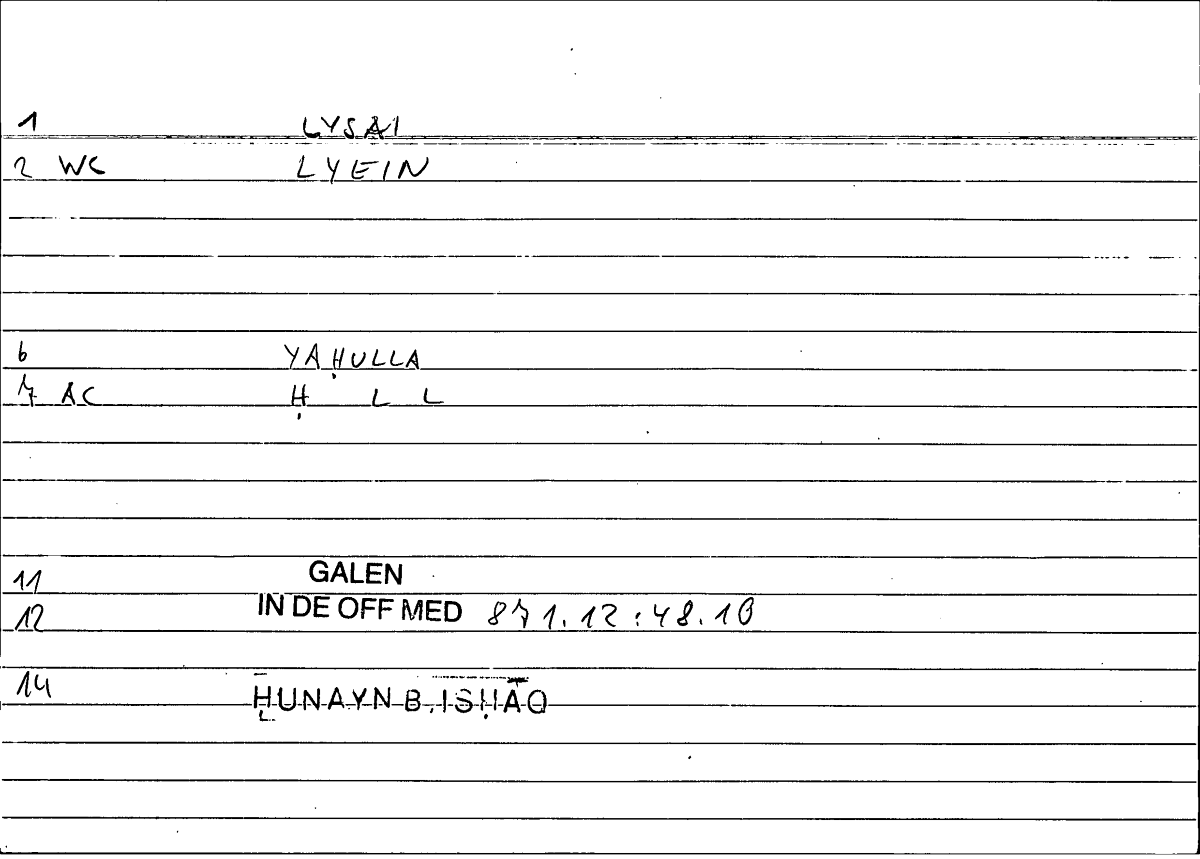 1 LYSAI
2 WC LYEIN
6 YAḤULLA
7 AC Ḥ L L
11 GALEN
12 IN DE OFF MED 871.12:48.10
14 ḤUNAYN B. ISḤĀQ